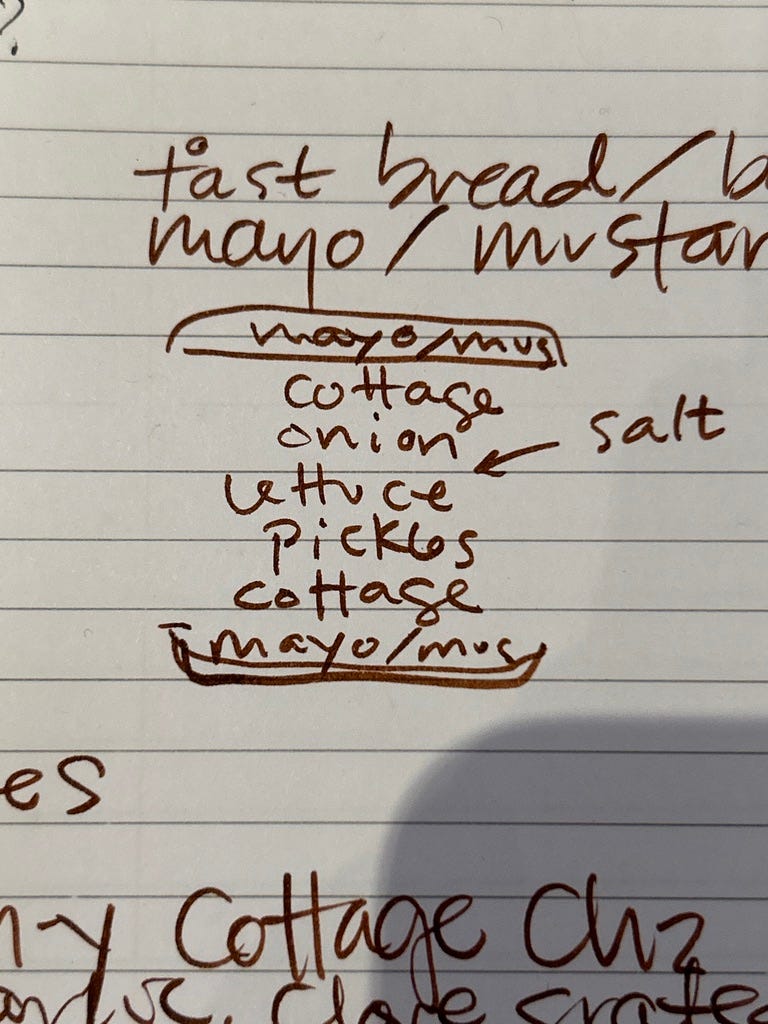 ?
tåst bread/b
mayo/mustar
mayo/mus
cottage
onion
salt
lettuce
pickles
cottage
mayo/mus
es
n-y Cottage Chz
clove grate